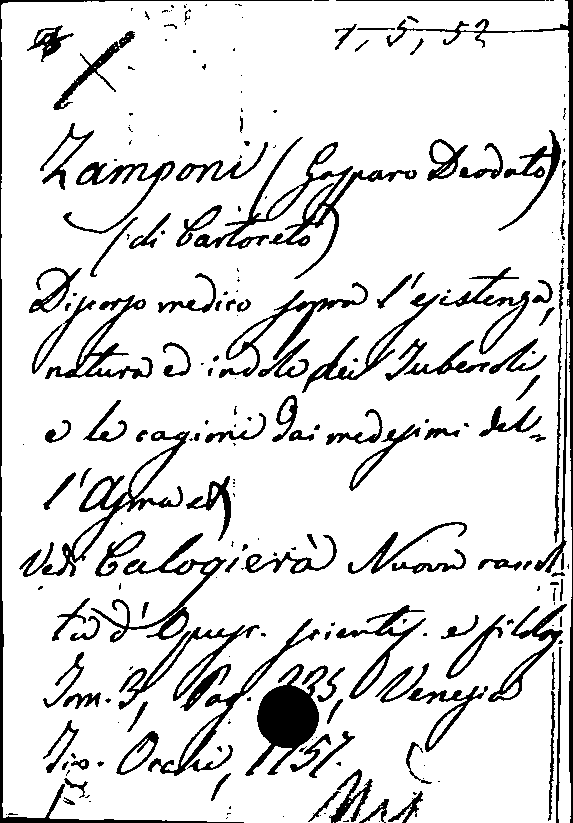 1, 5, 52
Zamponi (Gasparo Deodato)
(di Cartoceto)
Discorso medico sopra l'esistenza,
natura ed indole dei Tubercoli,
e le cagioni dai medesimi del-
l'Asma
Vedi Calogierà Nuova raccol-
ta d'Opusc. scientif. e filolog.
Tom. 3, Pag. 235, Venezia
Occhi, 1757.